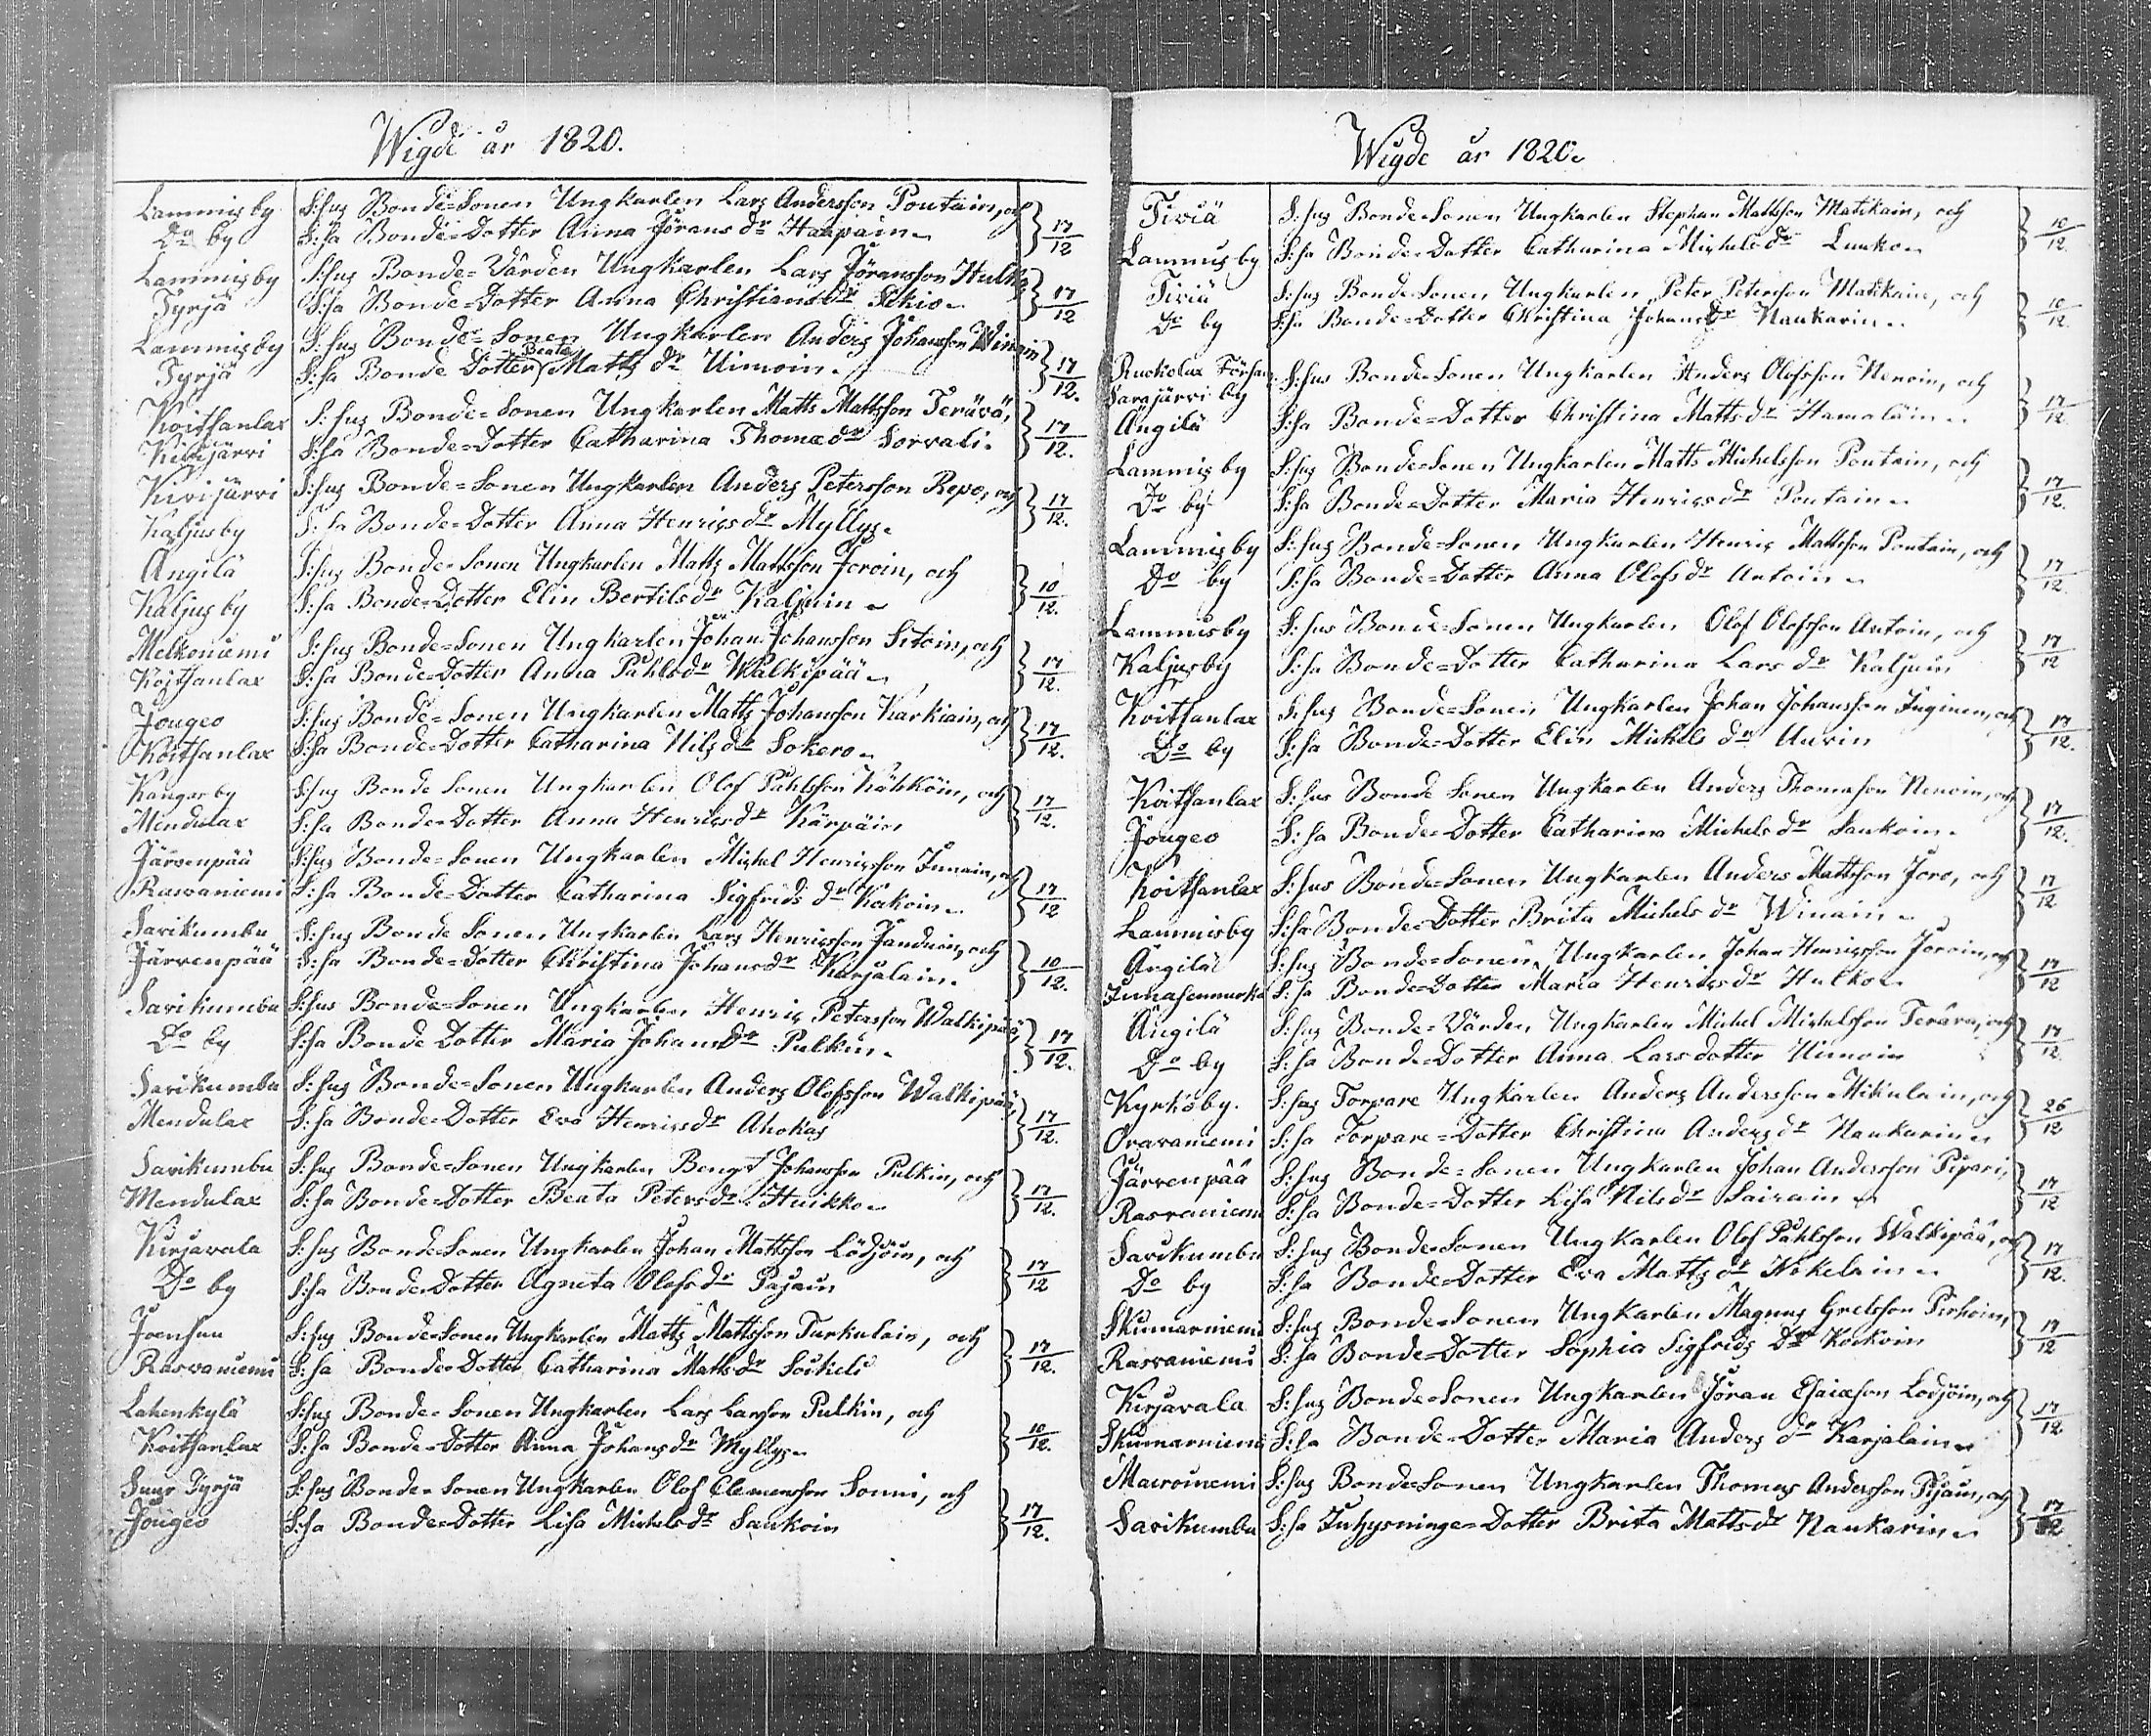 Wigde år 1820.
Lammis by S:sus Bonde-Sonen Ungkarlen Lars Andersson Poutain, och
Do by S:sa Bonde-Dotter Anna Jörans dr Haapain 17/12
Lammis by S:sus Bonde-Vården Ungkarlen Lars Jöransson Hulko
Tyrjä S:sa Bonde-Dotter Anna Christians dr 17/12
Lammis by S:sus Bonde-Sonen Ungkarlen Anders Johansson
Tyrjä S:sa Bonde Dotter Beata Matts dr Uimoin. 17/12.
Koitsanlax S:sus Bonde-Sonen Ungkarlen Matts Mattsson Terävä,
Kivijärvi S:sa Bonde-Dotter Catharina Thomæ dr Sorvali. 17/12.
Kivijärvi S:sus Bonde-Sonen Ungkarlen Anders Petersson Repo, och
Kaljusby S:sa Bonde-Dotter Anna Henrics dr Myllys. 17/12.
Angilä S:sus Bonde-Sonen Ungkarlen Matts Mattsson Joroin, och
Kaljus by S:sa Bonde-Dotter Elin Bertils dr Kaljuin 10/12.
Melkoniemi S:sus Bonde-Sonen Ungkarlen Johan Johansson Sitoin, och
Koitsanlax S:sa Bonde-Dotter Anna Påhls dr Walkipää 17/12.
Jougeo S:sus Bonde-Sonen Ungkarlen Matts Johansson Karkiain, och
Koitsanlax S:sa Bonde-Dotter Catharina Nils dr Sokero 17/12.
Kangasby S:sus Bonde Sonen Ungkarlen Olof Påhlsson Kähköin, och
Mendulax S:sa Bonde-Dotter Anna Henrics dr Kärpäin 17/12.
Järvenpää S:sus Bonde-Sonen Ungkarlen Michel Henricsson Junnain, och
Rasvaniemi S:sa Bonde-Dotter Catharina Sigfrids dr Kokoin 17/12
Savikumbu S:sus Bonde Sonen Ungkarlen Lars Henricsson Janduin, och
Järvenpää S:sa Bonde-Dotter Christina Johans dr Karjalain. 10/12.
Savikumbu S:sus Bonde-Sonen Ungkarlen Henric Petersson Walkipää,
Do by S:sa Bonde Dotter Maria Johans Dr Pulkin. 17/12.
Savikumbu S:sus Bonde-Sonen Ungkarlen Anders Olofsson Walkipää,
Mendulax S:sa Bonde-Dotter Eva Henrics dr Ahokas 17/12.
Savikumbu S:sus Bonde-Sonen Ungkarlen Bengt Johansson Pulkin, och
Mendulax S:sa Bonde-Dotter Beata Peters dr Huikko 17/12.
Kirjavala S:sus Bonde-Sonen Ungkarlen Johan Mattsson Lödjöin, och
Do by S:sa Bonde-Dotter Agneta Olofs dr Pajain 17/12
Joensuu S:sus Bonde-Sonen Ungkarlen Matts Mattsson Turkulain, och
Rasvaniemi S:sa Bonde-Dotter Catharina Matts dr Soikeli 17/12.
Lahenkylä S:sus Bonde-Sonen Ungkarlen Lars Larsson Pulkin, och
Koitsanlax S:sa Bonde-Dotter Anna Johans dr Myllys 10/12.
Suur Tyrjä S:sus Bonde-Sonen Ungkarlen Olof Clemensson Sonni, och
Jougeo S:sa Bonde-Dotter Lisa Michels dr Saukoin 17/12.
Wigde år 1820.
Tiviä S:sus Bonde-Sonen Ungkarlen Stephan Mattsson Matikain, och
Lammus by S:sa Bonde-Dotter Catharina Michels dr Luuko 10/12.
Tiviä S:sus Bonde-Sonen Ungkarlen Peter Petersson Matikain, och
Do by S:sa Bonde-Dotter Christina Johans Dr Naukarin 10/12.
Ruokolax Försam: S:sus Bonde-Sonen Ungkarlen Anders Olofsson Nenoin, och
Sarajärvi by
Angilä S:sa Bonde-Dotter Christina Matts dr Hamaläin 17/12.
Lammis by S:sus Bonde-Sonen Ungkarlen Matts Michelsson Poutain, och
Do by S:sa Bonde-Dotter Maria Henrics dr Poutain 17/12.
Lammis by S:sus Bonde-Sonen Ungkarlen Henric Mattsson Poutain, och
Do by S:sa Bonde-Dotter Anna Olofs dr Antoin 17/12.
Lammusby S:sus Bonde-Sonen Ungkarlen Olof Olofsson Antoin, och
Kaljusby S:sa Bonde-Dotter Catharina Lars dr Kaljuin 17/12
Koitsanlax S:sus Bonde-Sonen Ungkarlen Johan Johansson Inginen, och
Do by S:sa Bonde-Dotter Elin Michels dr 17/12.
Koitsanlax S:sus Bonde Sonen Ungkarlen Anders Thomasson Nenoin, och
Jougeo S:sa Bonde-Dotter Catharina Michels dr Saukoin. 17/12.
Koitsanlax S:sus Bonde-Sonen Ungkarlen Anders Mattsson Joro, och
Lammisby S:sa Bonde-Dotter Brita Michels dr Winain 17/12
Angilä S:sus Bonde-Sonen Ungkarlen Johan Henricsson Joroin, och
S:sa Bonde-Dotter Maria Henrics dr Hulko 17/12
Angilä S:sus Bonde-Vården Ungkarlen Michel Michelsson Terävä, och
Do by S:sa Bonde-Dotter Anna Lars dotter Uimoin 17/12.
Kyrkoby. S:sus Torpare Ungkarlen Anders Andersson Mikulain, och
Oravaniemi S:sa Torpare-Dotter Christina Anders dr Naukarin 26/12
Järvenpää S:sus Bonde-Sonen Ungkarlen Johan Andersson Pipari,
Rasvaniemi S:sa Bonde-Dotter Lisa Nils dr Sairain 17/12
Savikumbu S:sus Bonde-Sonen Ungkarlen Olof Påhlsson Walkipää, och
Do by S:sa Bonde-Dotter Eva Matts dr Nokelain 17/12.
Skumarniemi S:sus Bonde-Sonen Ungkarlen Magnus Gretsson Pirhoin,
Rasvaniemi S:sa Bonde-Dotter Sophia Sigfrids Dr Kokoin 17/12
Kirjavala S:sus Bonde-Sonen Ungkarlen Jöran Esaiæson Lodjöin, och
Skumarniemi S:sa Bonde-Dotter Maria Anders dr Karjalain 17/12
S:sus Bonde-Sonen Ungkarlen Thomas Andersson Pijain, och
Savikumbu S:sa Inhysninge-Dotter Brita Matts dr Naukarin 17/12